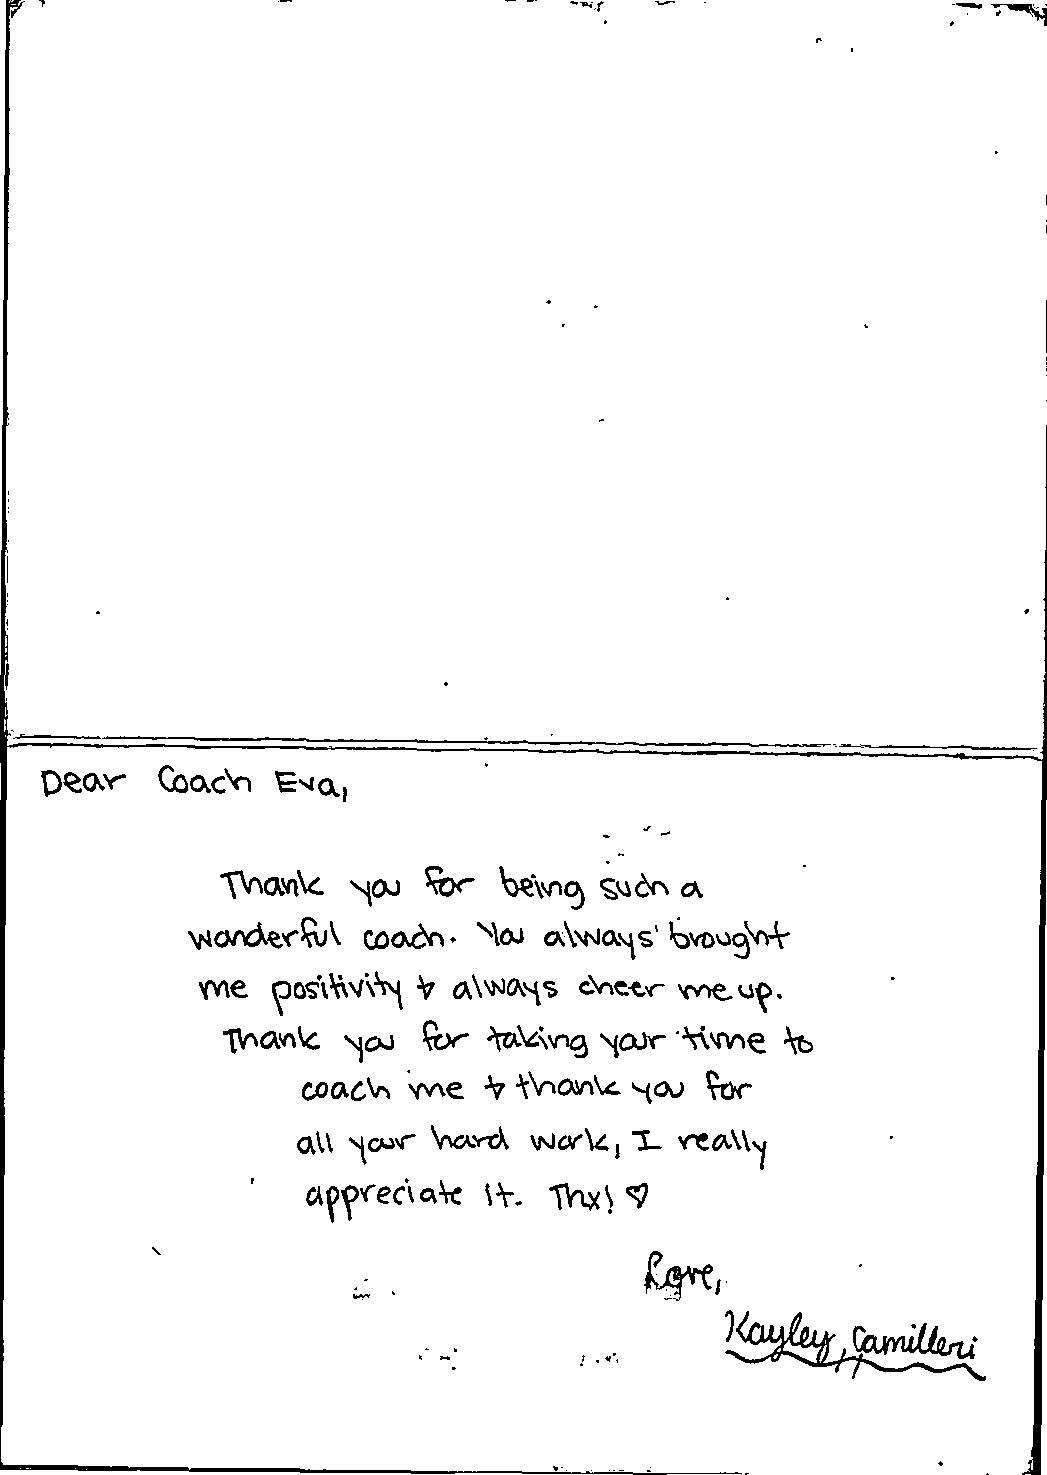 Dear Coach Eva,
Thank you for being such a
wonderful coach. You always brought
me positivity & always cheer me up.
Thank you for taking your time to
coach me & thank you for
all your hard work, I really
appreciate it. Thx! ♡
Love,
Kayley Camilleri